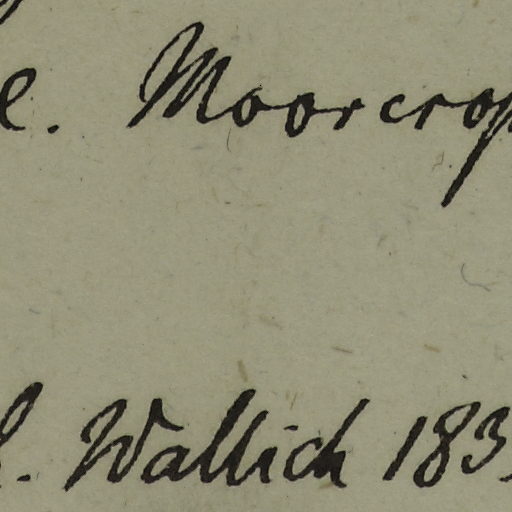 e. Moorcrop
l. Wallich 183